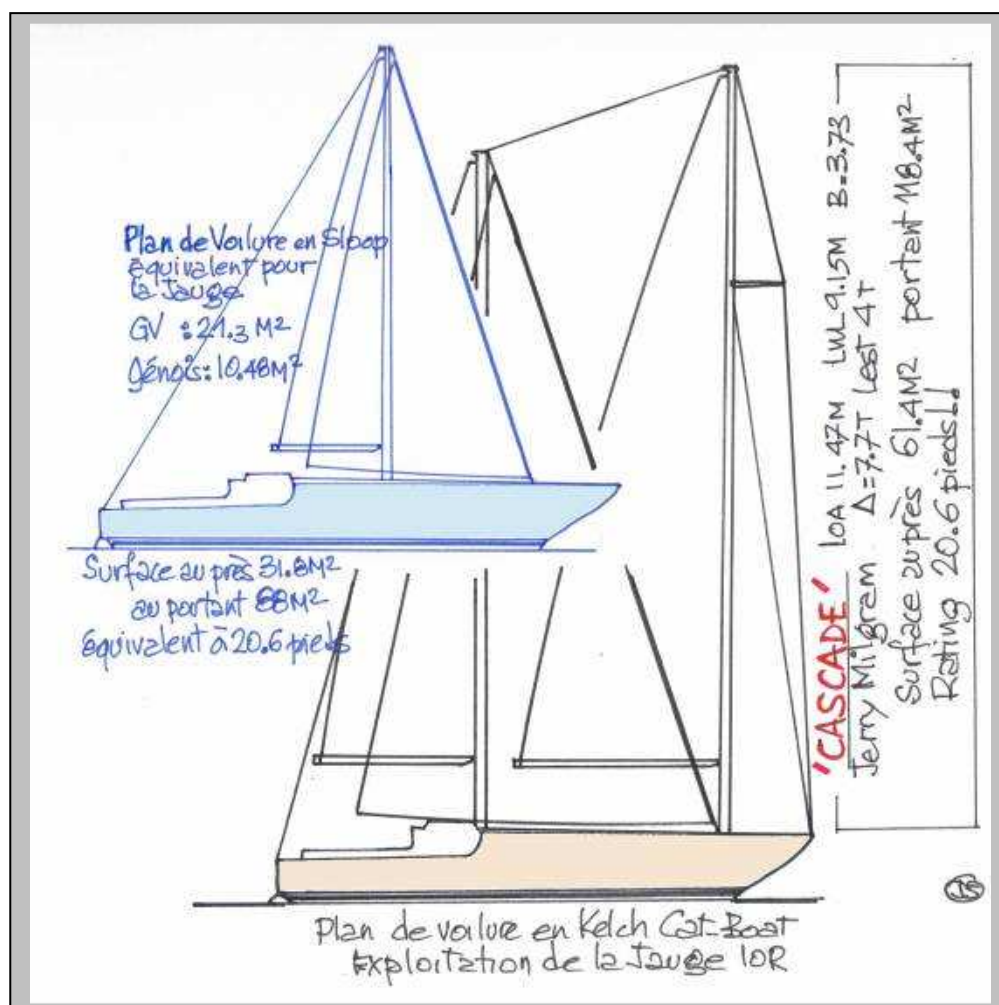 Plan de Voilure en Sloop
équivalent pour
la Jauge
GV : 21.3 M²
Génois: 10.48M²
Surface au près 31.8M²
au portant 88M²
équivalent à 20.6 pieds
'CASCADE' LOA 11.47M LWL 9.15M B=3.73
Jerry Milgram Δ=7.7T Lest 4T
Surface au près 61.4M² portant 118.4M²
Rating 20.6 pieds!!
Plan de voilure en Ketch Cat-Boat
Exploitation de la Jauge IOR